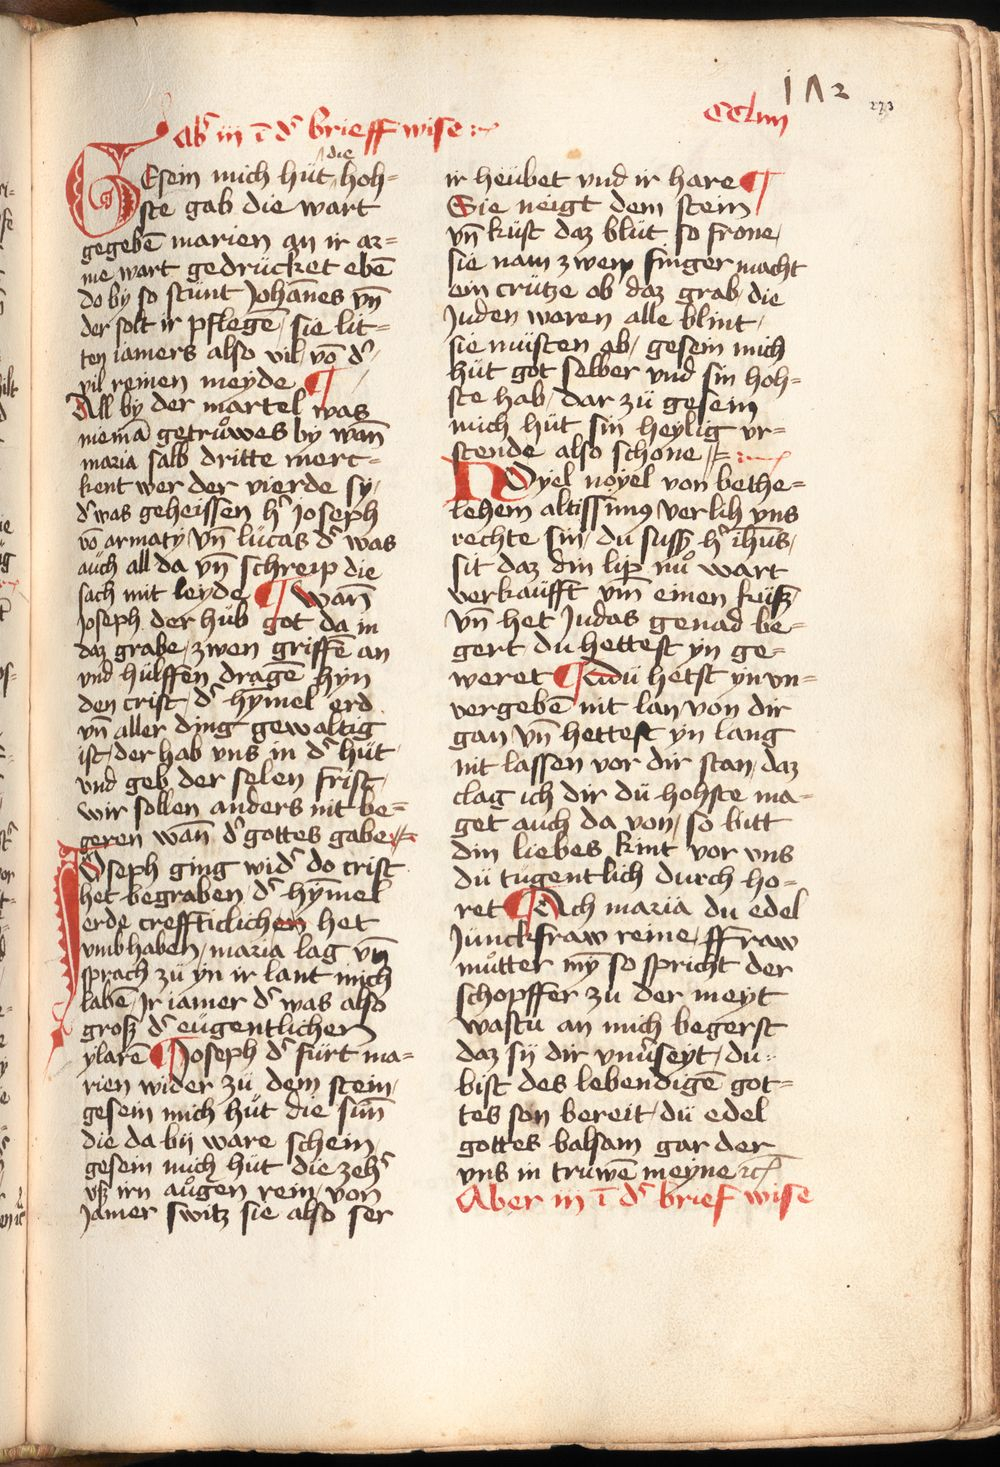 1Λ2
273
CCLiiii
Ab᷑ iij ī d᷑ brieff wise
die
GEsein mich hüt hoh=
ste gab die wart
gegebē marien an ir ar=
me wart gedrücket ebē
do by so stünt Johānes vn̄
der solt ir pflegē / sie lit=
ten iamers also vil / vō d᷑
vil reinen meyde ¶
All by der martel was
niemā getrůwes by wan̄
maria salb dritte merc=
kent wer der vierde sy /
d᷑ was geheissen h᷑ ioseph
vō armaty vn̄ lucas d᷑ was
auch all da vn̄ schreip die
sach mit leyde ¶ wan̄
Joseph der hüb got da in
daz grabe / zwen griffē an
vnd hülffen dragē hyn
den crist / d᷑ hȳmel erd
vn̄ aller ding gewaltig
ist / der hab vns in d᷑ hüt
vnd geb der selen frist /
wir sollen anders nit be=
geren wan̄ d᷑ gottes gabe
Joseph ging wid᷑ do crist
het begraben / d᷑ hȳmel
erde creffticlichen het
vmbhaben / maria lag vn̄
sprach zü yn ir lant mich
labē / Ir iamer d᷑ was also
groß d᷑ eügentlichen
ylarē ¶ Joseph d᷑ fürt ma=
rien wider zü dem stein /
gesein mich hüt die sun̄
die da bij ware schein
gesein mich hüt die zeh᷑
vß irn aůgen rein / von
Jamer switz sie also ser
ir heübet vnd ir hare ¶
Sie neigt dem stein
vn̄ küst daz blüt so frone /
sie nam zwen finger macht
ein crütze ob daz grab / die
Juden woren alle blint /
sie müsten ab / gesein mich
hüt got selber vnd sin hoh=
ste hab / dar zü gesein
mich hüt sin heylig vr=
stende also schone
Noyel noyel von bethe=
lehem altissimꝰ verlih vns
rechte sin / du suss h᷑ ih̄us /
sit daz din lip nů wart
verkaüfft vm̄ einen kuß
vn̄ het Judas genad be=
gert du hettest yn ge=
weret ¶ du hetst yn vn=
vergebē nit lan / von dir
gan vn̄ hettest yn lang
nit lassen vor dir stan / daz
clag ich dir dü hohste ma=
get auch da von / so bitt
din liebes kint vor vns
dü tugentlich durch ho=
ret ¶ Ach maria du edel
Junckfraw reine / ffraw
můtter mȳ so spricht der
schopffer zu der meyt
wastu an mich begerst
daz sij dir vnu᷑seyt / du
bist des lebendigē got=
tes son bereit / dü edel
gottes balsam gar der
vns in truwē meyne ꝛc
Aber iij ī d᷑ brief wise